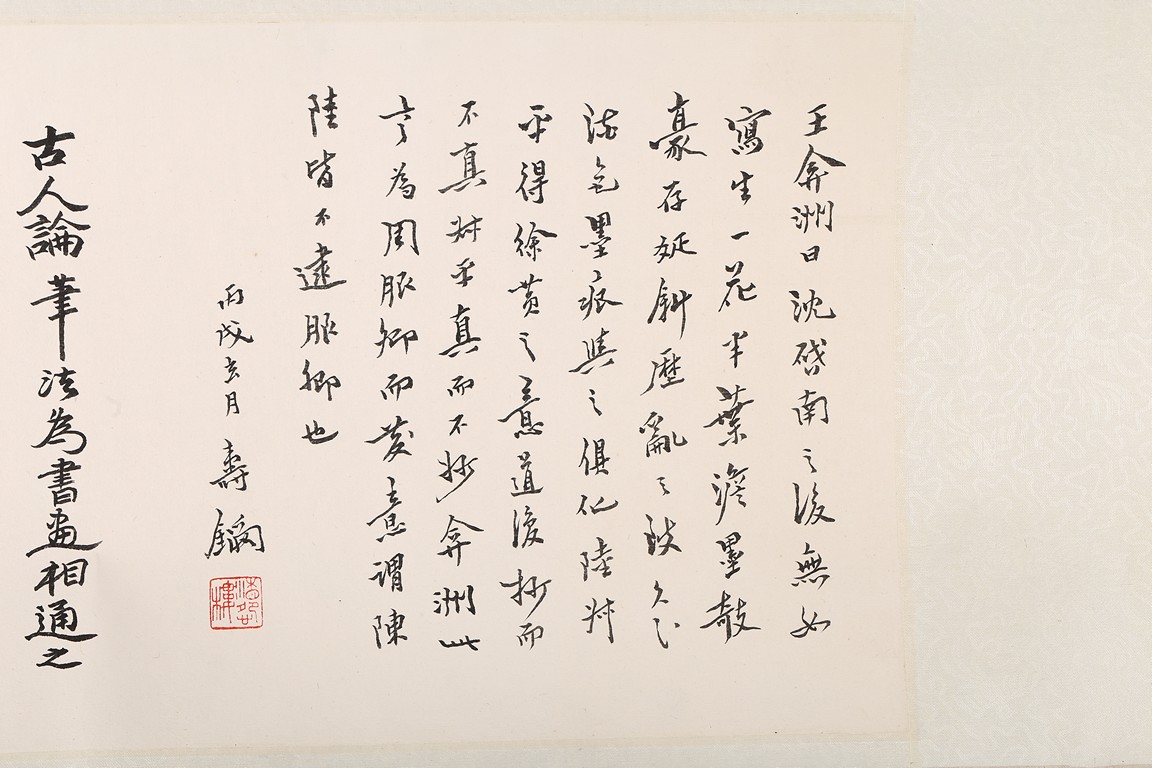 王弇洲曰沈啓南之後無如
寫生一花半葉澹墨欹
豪存疎斜歷亂之致久之
淺色墨痕與之俱化陸叔
平得徐黃之意道復妙而
不真叔平真而不妙弇洲此
言為周服卿而發意謂陳
陸皆不逮服卿也
丙戌玄月 壽
古人論筆法為書畫相通之